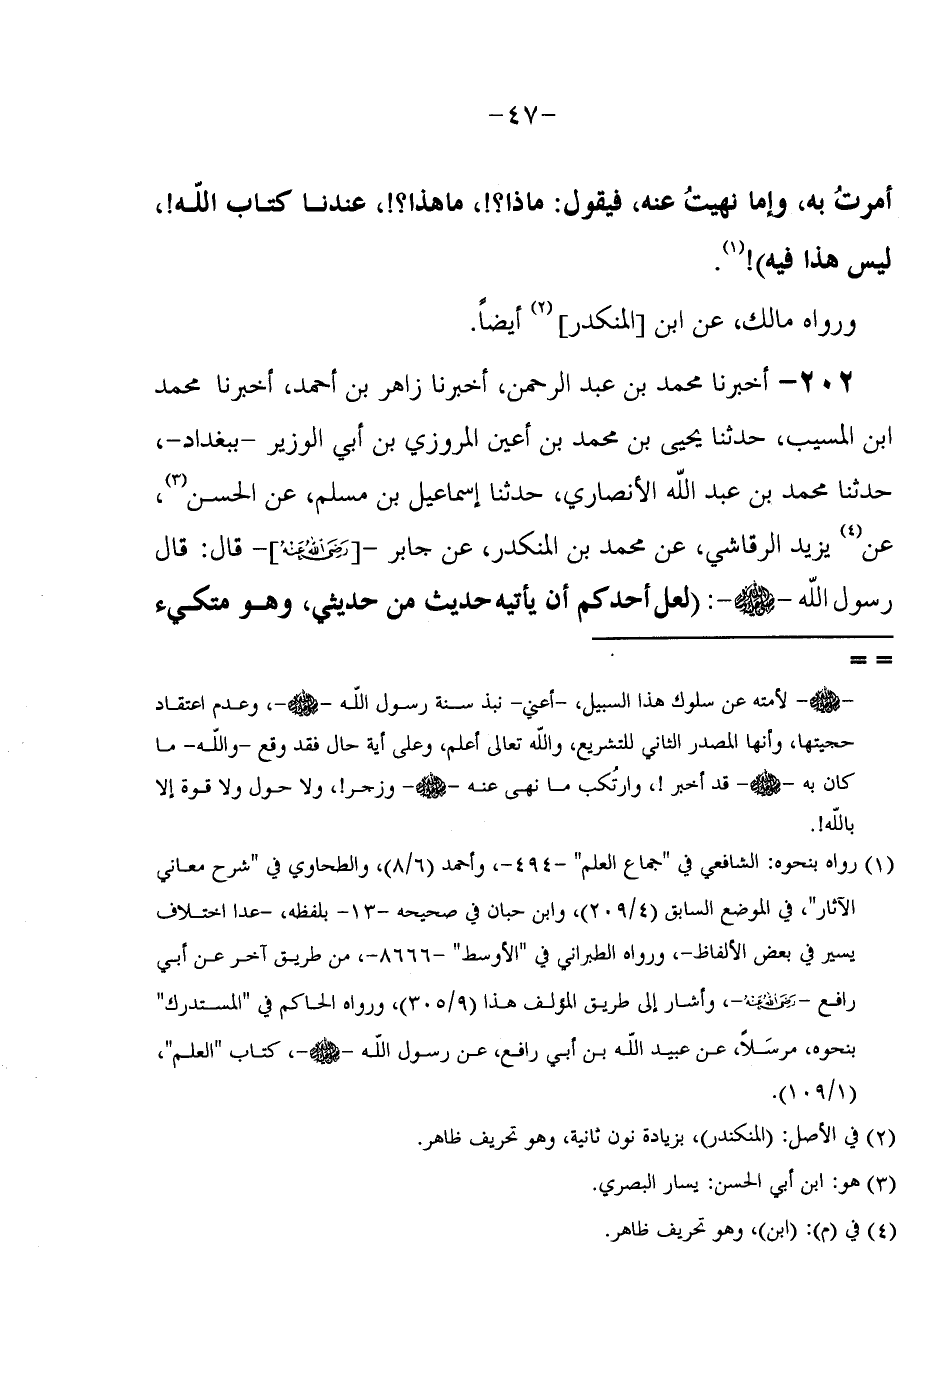 -٤٧-
أمرتُ به، وإما نهيتُ عنه، فيقول: ماذا؟!، ماهذا؟!، عندنا كتاب اللّه!،
ليس هذا فيه)!(١).
ورواه مالك، عن ابن [المنكدر](٢) أيضاً.
٢٠٢- أخبرنا محمد بن عبد الرحمن، أخبرنا زاهر بن أحمد، أخبرنا محمد
ابن المسيب، حدثنا يحيى بن محمد بن أعين المروزي بن أبي الوزير -ببغداد-،
حدثنا محمد بن عبد اللّه الأنصاري، حدثنا إسماعيل بن مسلم، عن الحسن(٣)،
عن(٤) يزيد الرقاشي، عن محمد بن المنكدر، عن جابر -[رَضِيَ اللهُ عَنْهُ]- قال: قال
رسول اللّه -ﷺ-: (لعل أحدكم أن يأتيه حديث من حديثي، وهو متكيء
= =
-ﷺ- لأمته عن سلوك هذا السبيل، -أعني- نبذ سنة رسول اللّه -ﷺ-، وعدم اعتقاد
حجيتها، وأنها المصدر الثاني للتشريع، واللّه تعالى أعلم، وعلى أية حال فقد وقع -واللّه- ما
كان به -ﷺ- قد أخبر !، وارتُكب ما نهى عنه -ﷺ- وزجر!، ولا حول ولا قوة إلا
باللّه!.
(١) رواه بنحوه: الشافعي في "جماع العلم" -٤٩٤-، وأحمد (٨/٦)، والطحاوي في "شرح معاني
الآثار"، في الموضع السابق (٢٠٩/٤)، وابن حبان في صحيحه -١٣- بلفظه، -عدا اختلاف
يسير في بعض الألفاظ-، ورواه الطبراني في "الأوسط" -٨٦٦٦-، من طريق آخر عن أبي
رافع -رَضِيَ اللهُ عَنْهُ-، وأشار إلى طريق المؤلف هذا (٣٠٥/٩)، ورواه الحاكم في "المستدرك"
بنحوه، مرسَلاً، عن عبيد اللّه بن أبي رافع، عن رسول اللّه -ﷺ-، كتاب "العلم"،
(١٠٩/١).
(٢) في الأصل: (المنكندر)، بزيادة نون ثانية، وهو تحريف ظاهر.
(٣) هو: ابن أبي الحسن: يسار البصري.
(٤) في (م): (ابن)، وهو تحريف ظاهر.